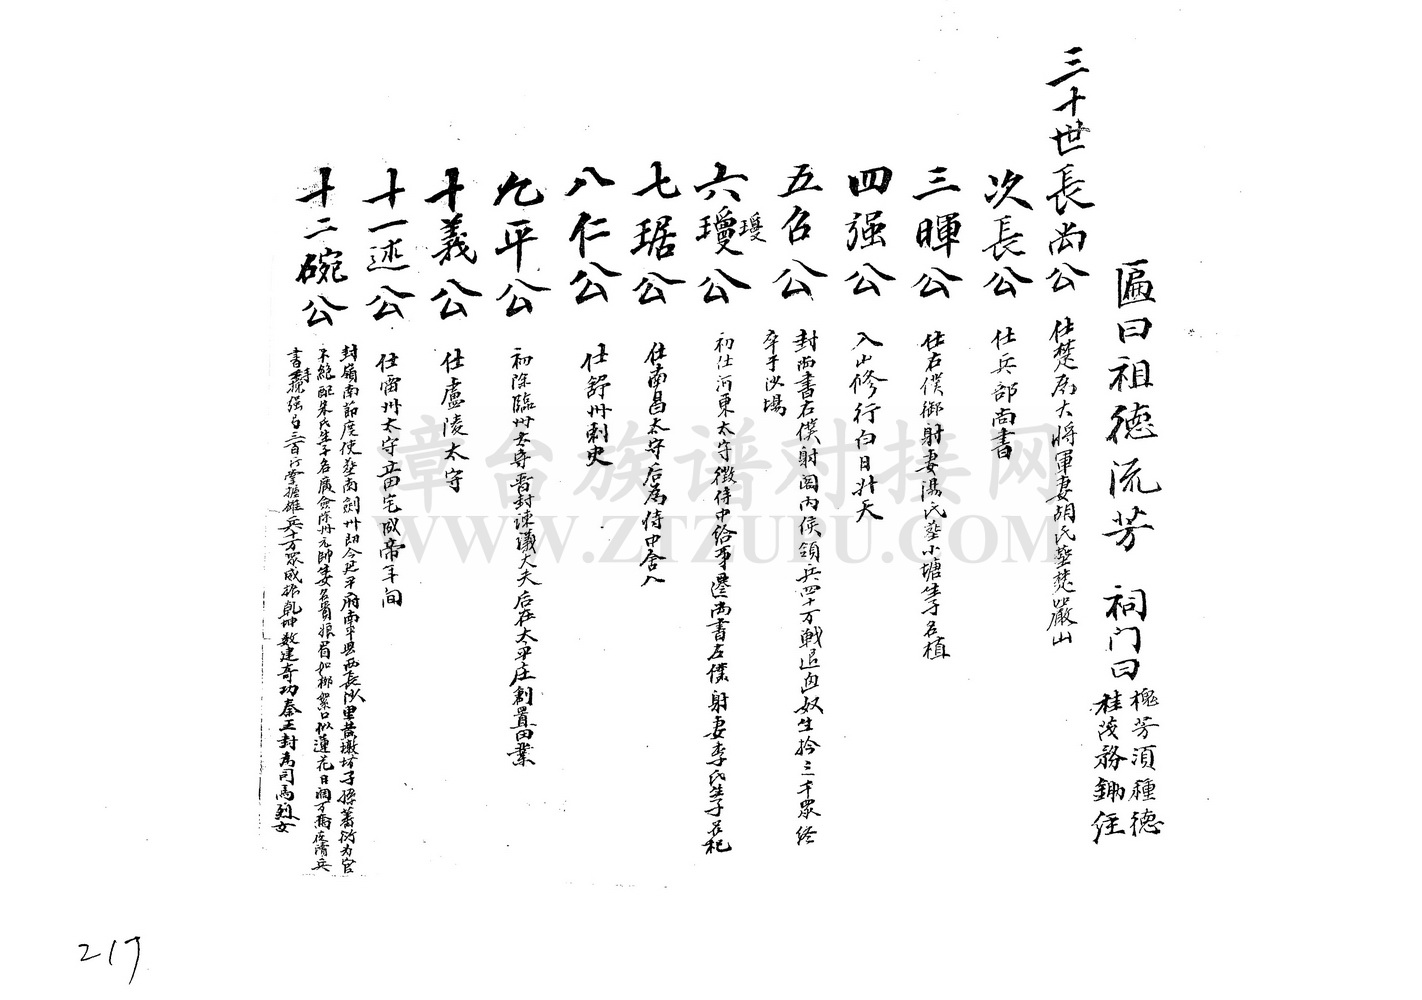 匾曰祖德流芳 祠门曰
槐芳須種德
桂茂務鋤經
三十世長尚公 仕楚為大將軍妻胡氏塟楚嚴山
次長公 仕兵部尚書
三暉公 仕右僕御射妻湯氏塟小塘生子名植
四强公 入山修行白日升天
五召公 封尚書右僕射関内侯領兵四十万戰退匈奴生拾三千眾終
卒于沙場
六瓊公 初仕河東太守徵侍中给事遷尚書左僕射妻李氏生子名杞
七琚公 仕南昌太守后為侍中舍人
八仁公 仕舒州刺史
九平公 初除臨州太尊晋封諫議大夫后在太平庄創置田業
十義公 仕盧陵太守
十一述公 仕雷州太守立宅成帝年间
十二碗公 封嶺南節度使塟南劍州即今延平府南平县西長沙里昔墩坊子孫蕃衍为官
不絕配朱氏生子名廣
書 强弓三百斤掌握雄兵十万眾威振乾坤数建奇功秦王封為司馬烈女
217
章台族谱对接网
WWW.ZTZUPU.COM